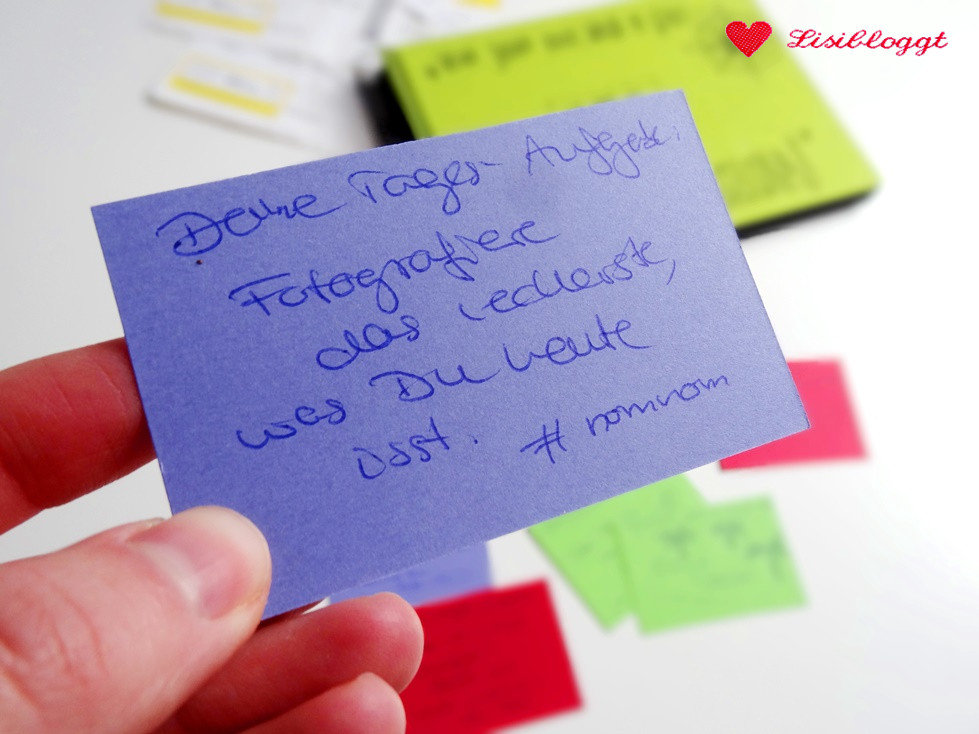 Lisibloggt
Deine Tages-Aufgabe:
Fotografiere
das leckerste,
was Du heute
isst. #nomnom